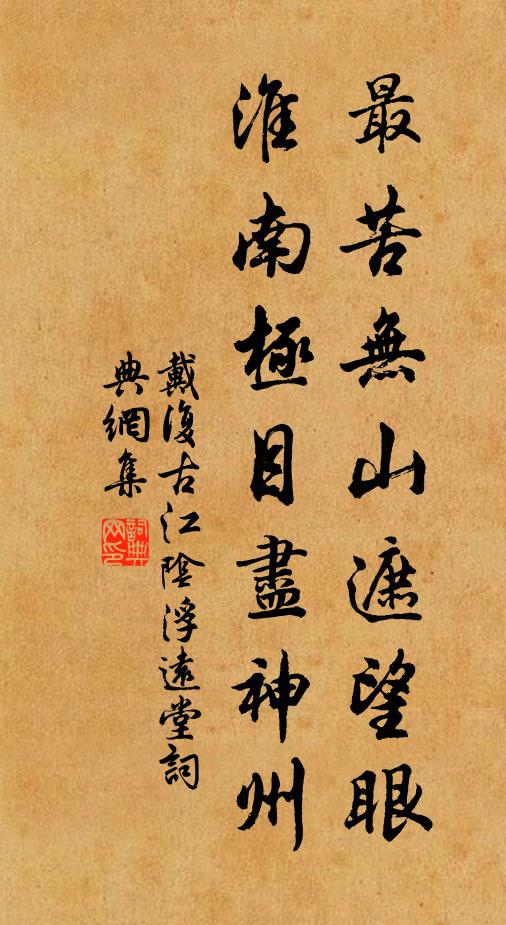 最苦無山遮望眼
淮南極目盡神州
戴復古江陰浮遠堂詞
典網集
詞典
网印